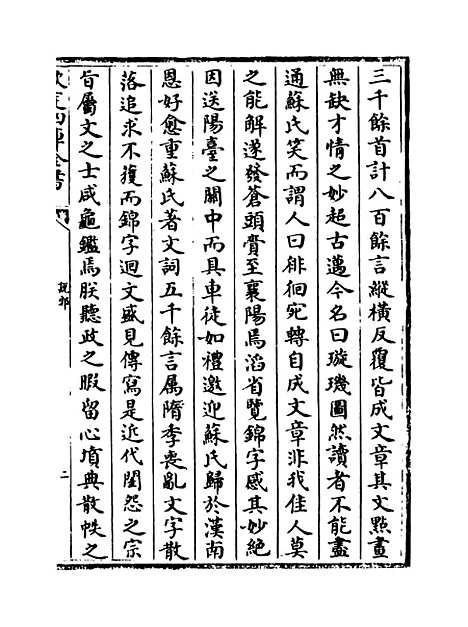 三千餘首計八百餘言縱橫反覆皆成文章其文㸃畫
無缺才情之妙超古邁今名曰璇璣圖然讀者不能盡
通蘇氏笑而謂人曰徘徊宛轉自成文章非我佳人莫
之能解遂發蒼頭賫至襄陽焉滔省覽錦字感其妙絶
因送陽臺之關中而具車徒如禮邀迎蘇氏歸於漢南
恩好愈重蘇氏著文詞五千餘言属隋季喪亂文字散
落追求不獲而錦字迴文盛見傳寫是近代閨怨之宗
旨屬文之士咸龜鑑焉朕聽政之暇留心墳典散帙之
欽定四庫全書
説郛
二